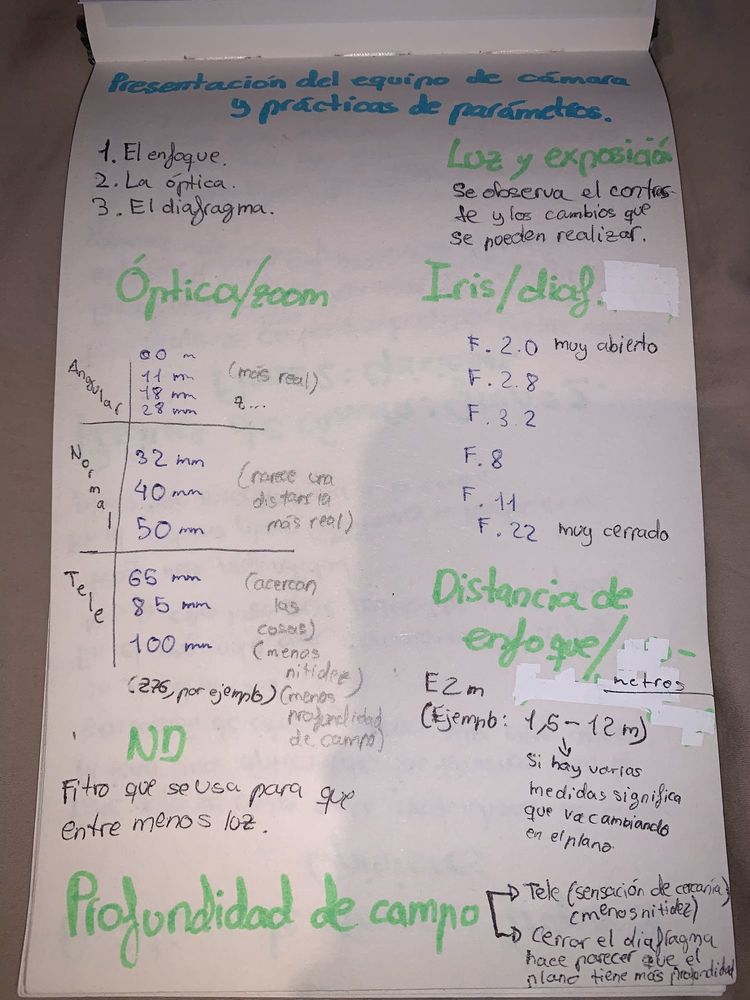 Presentación del equipo de cámara
y prácticas de parámetros.
1. El enfoque.
2. La óptica.
3. El diafragma.
Luz y exposició
Se observa el contras-
te y los cambios que
se pueden realizar.
Óptica/zoom
Angular
00 m
11 mm
18 mm
28 mm
(más real)
Normal
32 mm
40 mm
50 mm
(parece una
distancia
más real)
Tele
65 mm
85 mm
100 mm
(acercan
las
cosas)
(menos
nitidez)
(276, por ejemplo)
(menos
profundidad
de campo)
ND
Filtro que se usa para que
entre menos luz.
Iris/diaf.
F. 2.0 muy abierto
F. 2.8
F. 3.2
F. 8
F. 11
F. 22 muy cerrado
Distancia de
enfoque/
E2 m
metros
(Ejemplo: 1,5 - 12 m)
Si hay varias
medidas significa
que va cambiando
en el plano.
Profundidad de campo
Tele (sensación de cercanía)
(menos nitidez)
Cerrar el diaflagma
hace parecer que el
plano tiene más profundidad